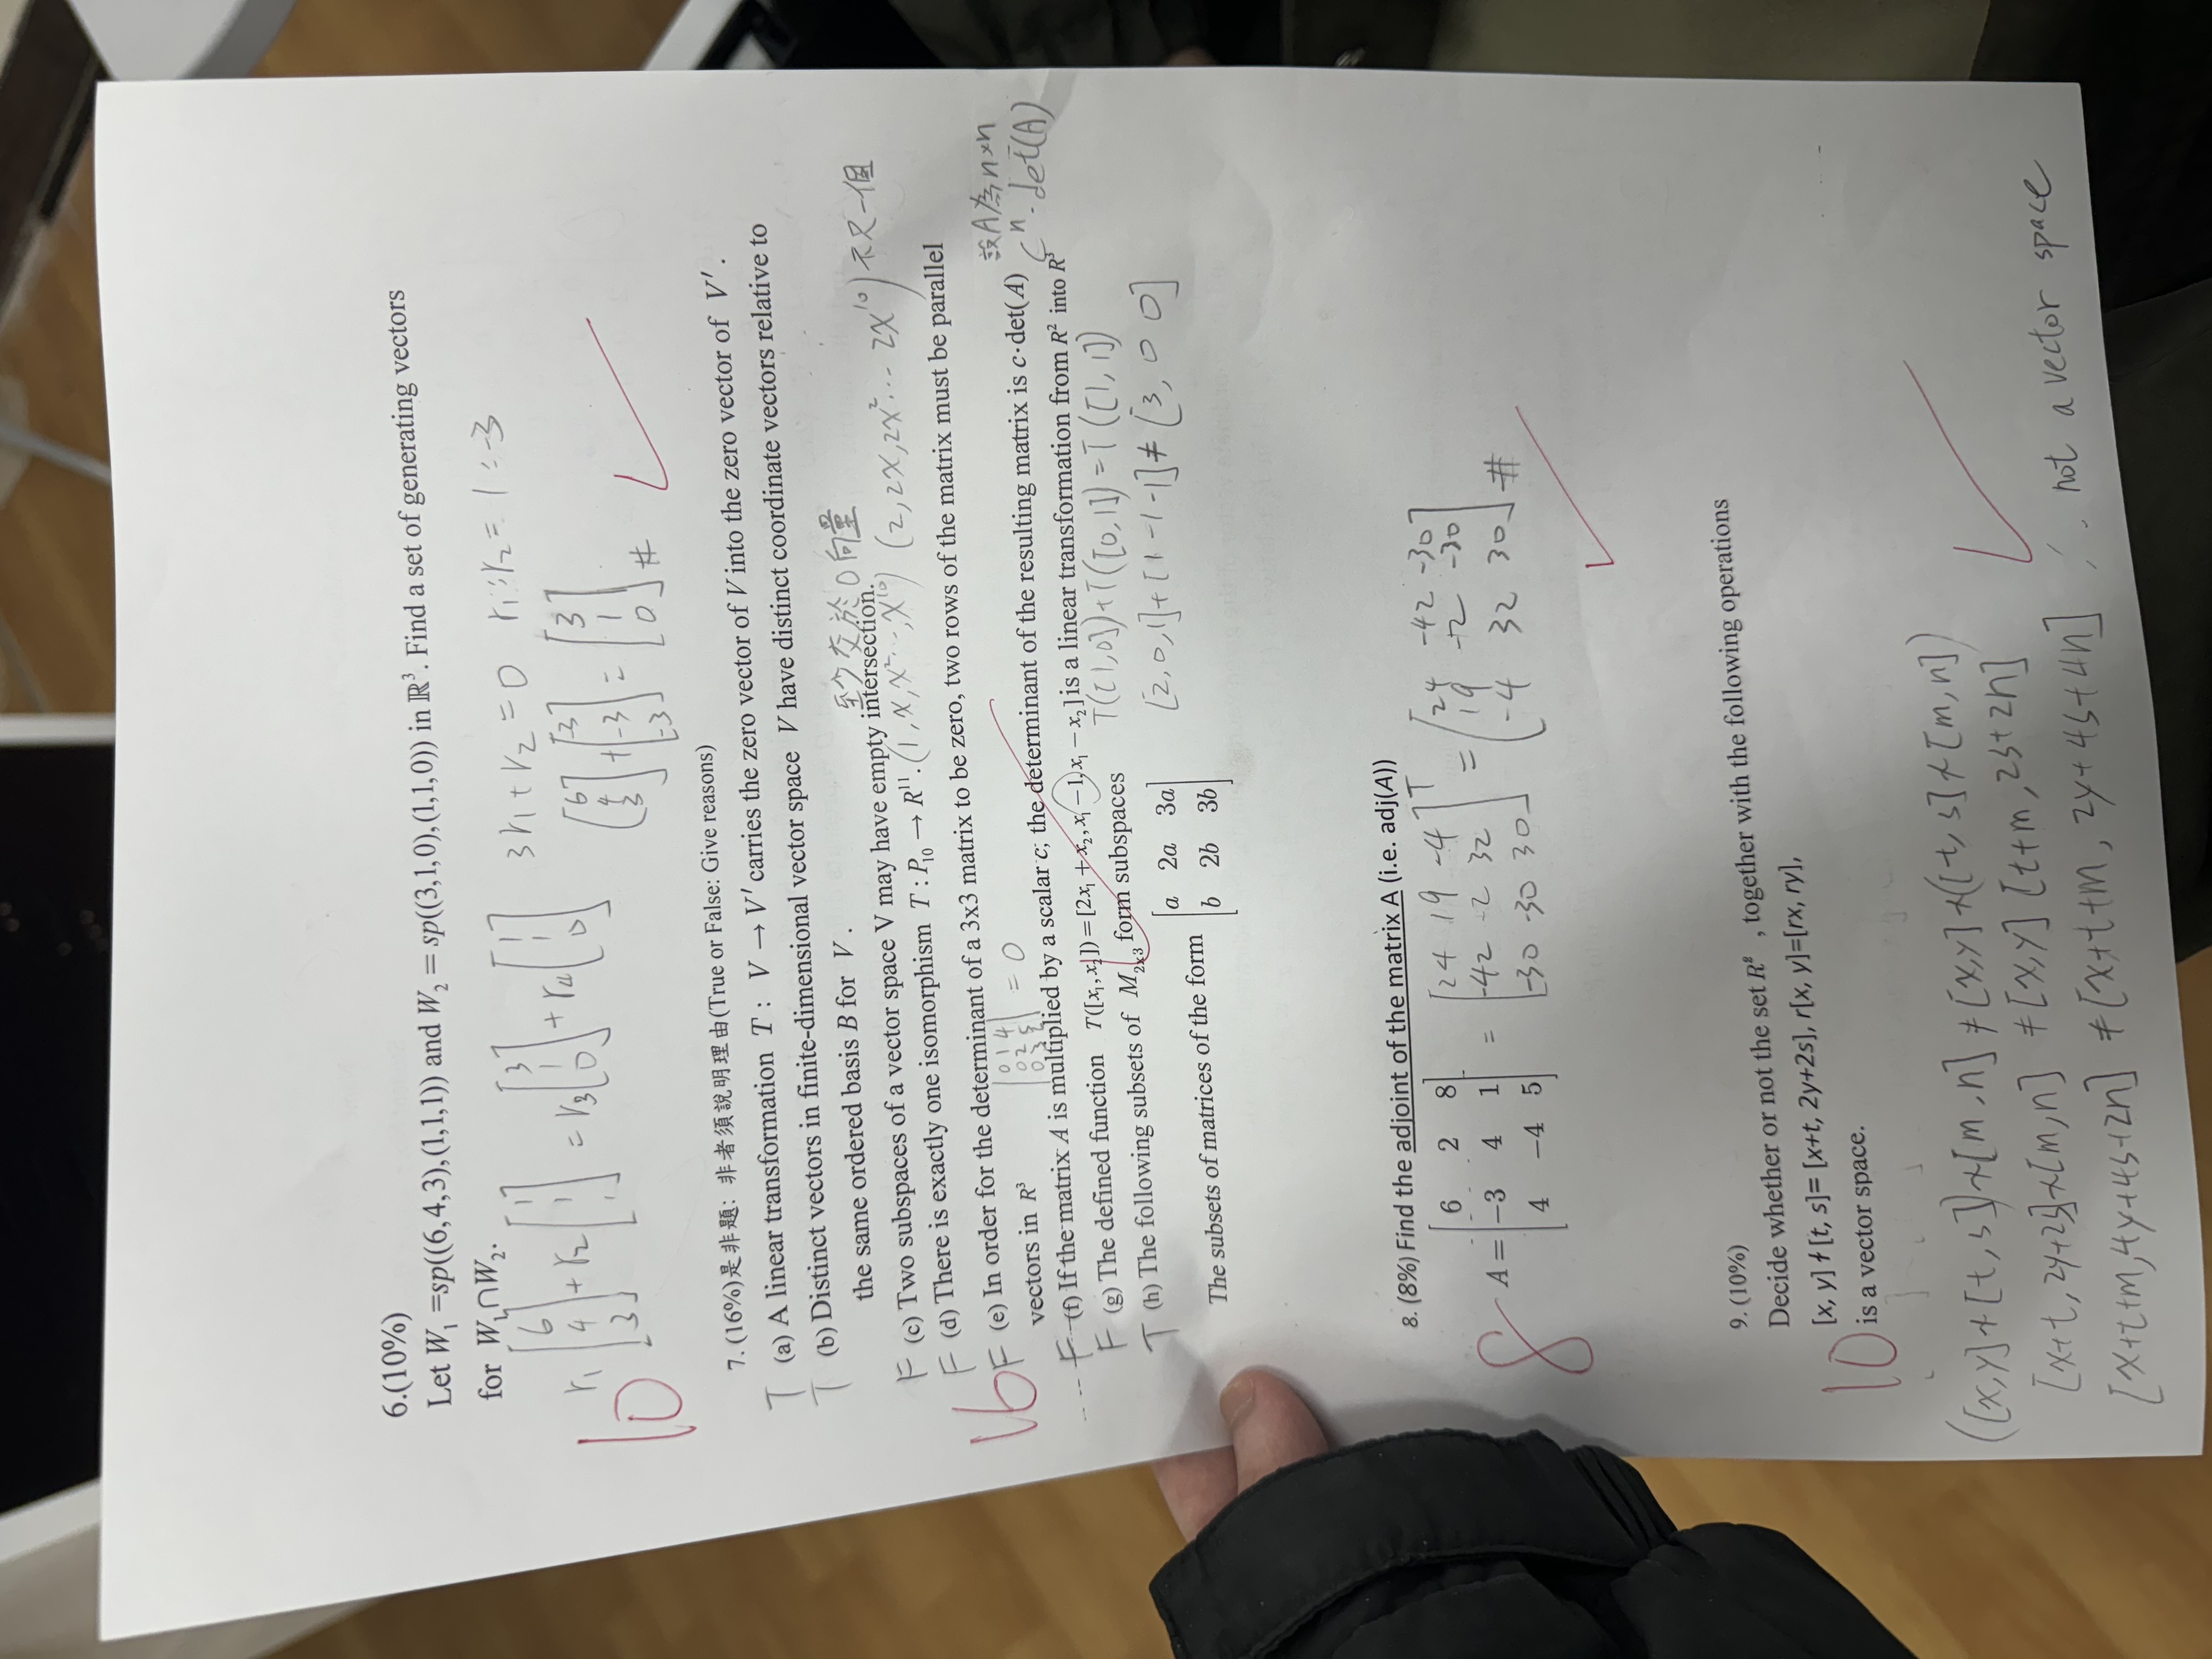 6.(10%)
Let W₁ =sp((6,4,3),(1,1,1)) and W₂ = sp((3,1,0),(1,1,0)) in ℝ³. Find a set of generating vectors
for W₁∩W₂.
r₁ [6 4 3] + r₂ [1 1 1] = r₃ [3 1 0] + r₄ [1 1 0]
3r₁+r₂=0 r₁:r₂= 1:-3
[6 4 3] + [-3 -3 -3] = [3 1 0] #
10
7. (16%)是非題: 非者須說明理由(True or False: Give reasons)
T (a) A linear transformation T : V → V′ carries the zero vector of V into the zero vector of V′.
T (b) Distinct vectors in finite-dimensional vector space V have distinct coordinate vectors relative to
the same ordered basis B for V .
至少交於0向量
F (c) Two subspaces of a vector space V may have empty intersection.
F (d) There is exactly one isomorphism T : P₁₀ → R¹¹. (1,x,x²…,x¹⁰) (2,2x,2x²…2x¹⁰)不只一個
16
F (e) In order for the determinant of a 3x3 matrix to be zero, two rows of the matrix must be parallel
vectors in R³
|0 1 4
0 2 5
0 3 | = 0
設A為n×n
F (f) If the matrix A is multiplied by a scalar c, the determinant of the resulting matrix is c·det(A) cⁿ·det(A)
F (g) The defined function T([x₁,x₂])=[2x₁+x₂,x₁−1,x₁−x₂] is a linear transformation from R² into R³
T([1,0])+T([0,1])=T([1,1])
T (h) The following subsets of M₂ₓ₃ form subspaces
[2,0,1]+[1 -1 -1]≠[3, 0 0]
The subsets of matrices of the form [a 2a 3a
b 2b 3b]
8. (8%) Find the adjoint of the matrix A (i.e. adj(A))
A = [6 2 8
-3 4 1
4 −4 5]
= [24 19 -4
-42 -2 32
-30 -30 30]ᵀ
= [24 -42 -30
19 -2 -30
-4 32 30] #
8
9. (10%)
Decide whether or not the set R² , together with the following operations
[x, y] ∔ [t, s]= [x+t, 2y+2s], r[x, y]=[rx, ry],
10
is a vector space.
([x,y]∔[t,s])∔[m,n] ≠ [x,y]∔([t,s]∔[m,n])
[x+t,2y+2s]∔[m,n] ≠ [x,y] [t+m,2s+2n]
[x+t+m,4y+4s+2n] ≠ [x+t+m, 2y+4s+4n] ∴ not a vector space